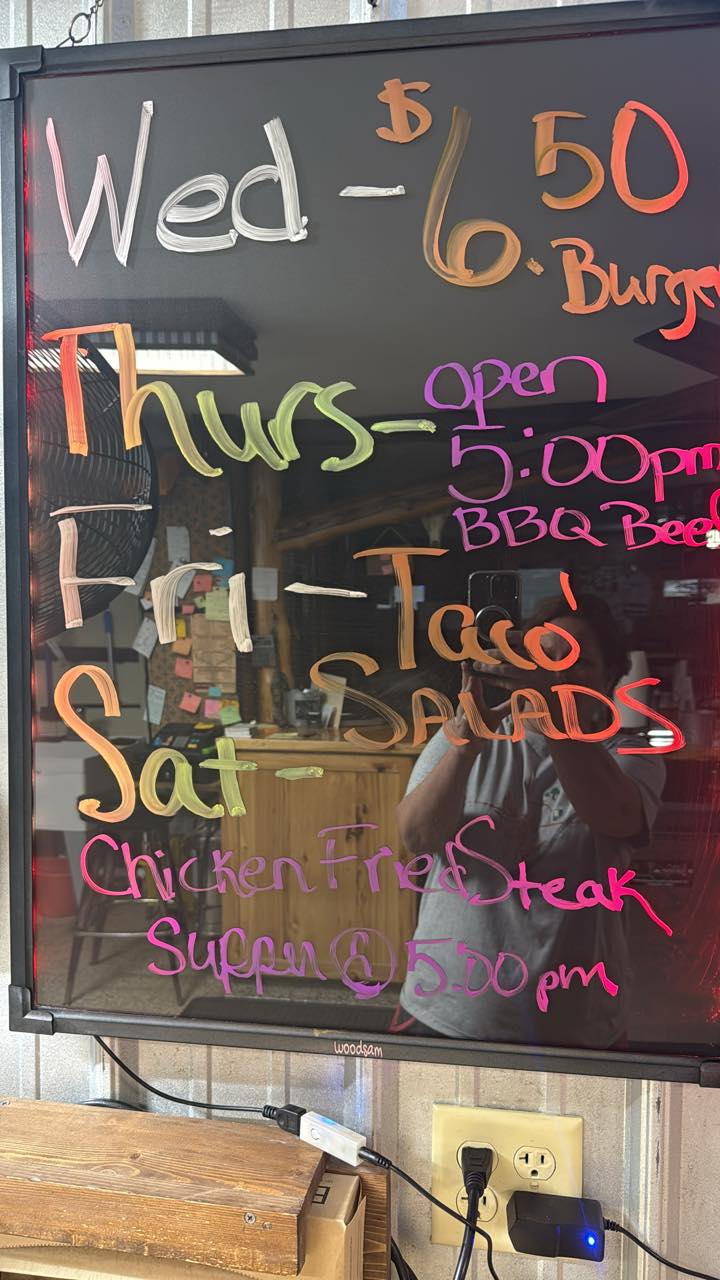 Wed - $6.50
Burge
Thurs - Open
5:00pm
BBQ Beef
Fri - Taco
SALADS
Sat -
Chicken Fried Steak
@ 5:00 pm
woodsam